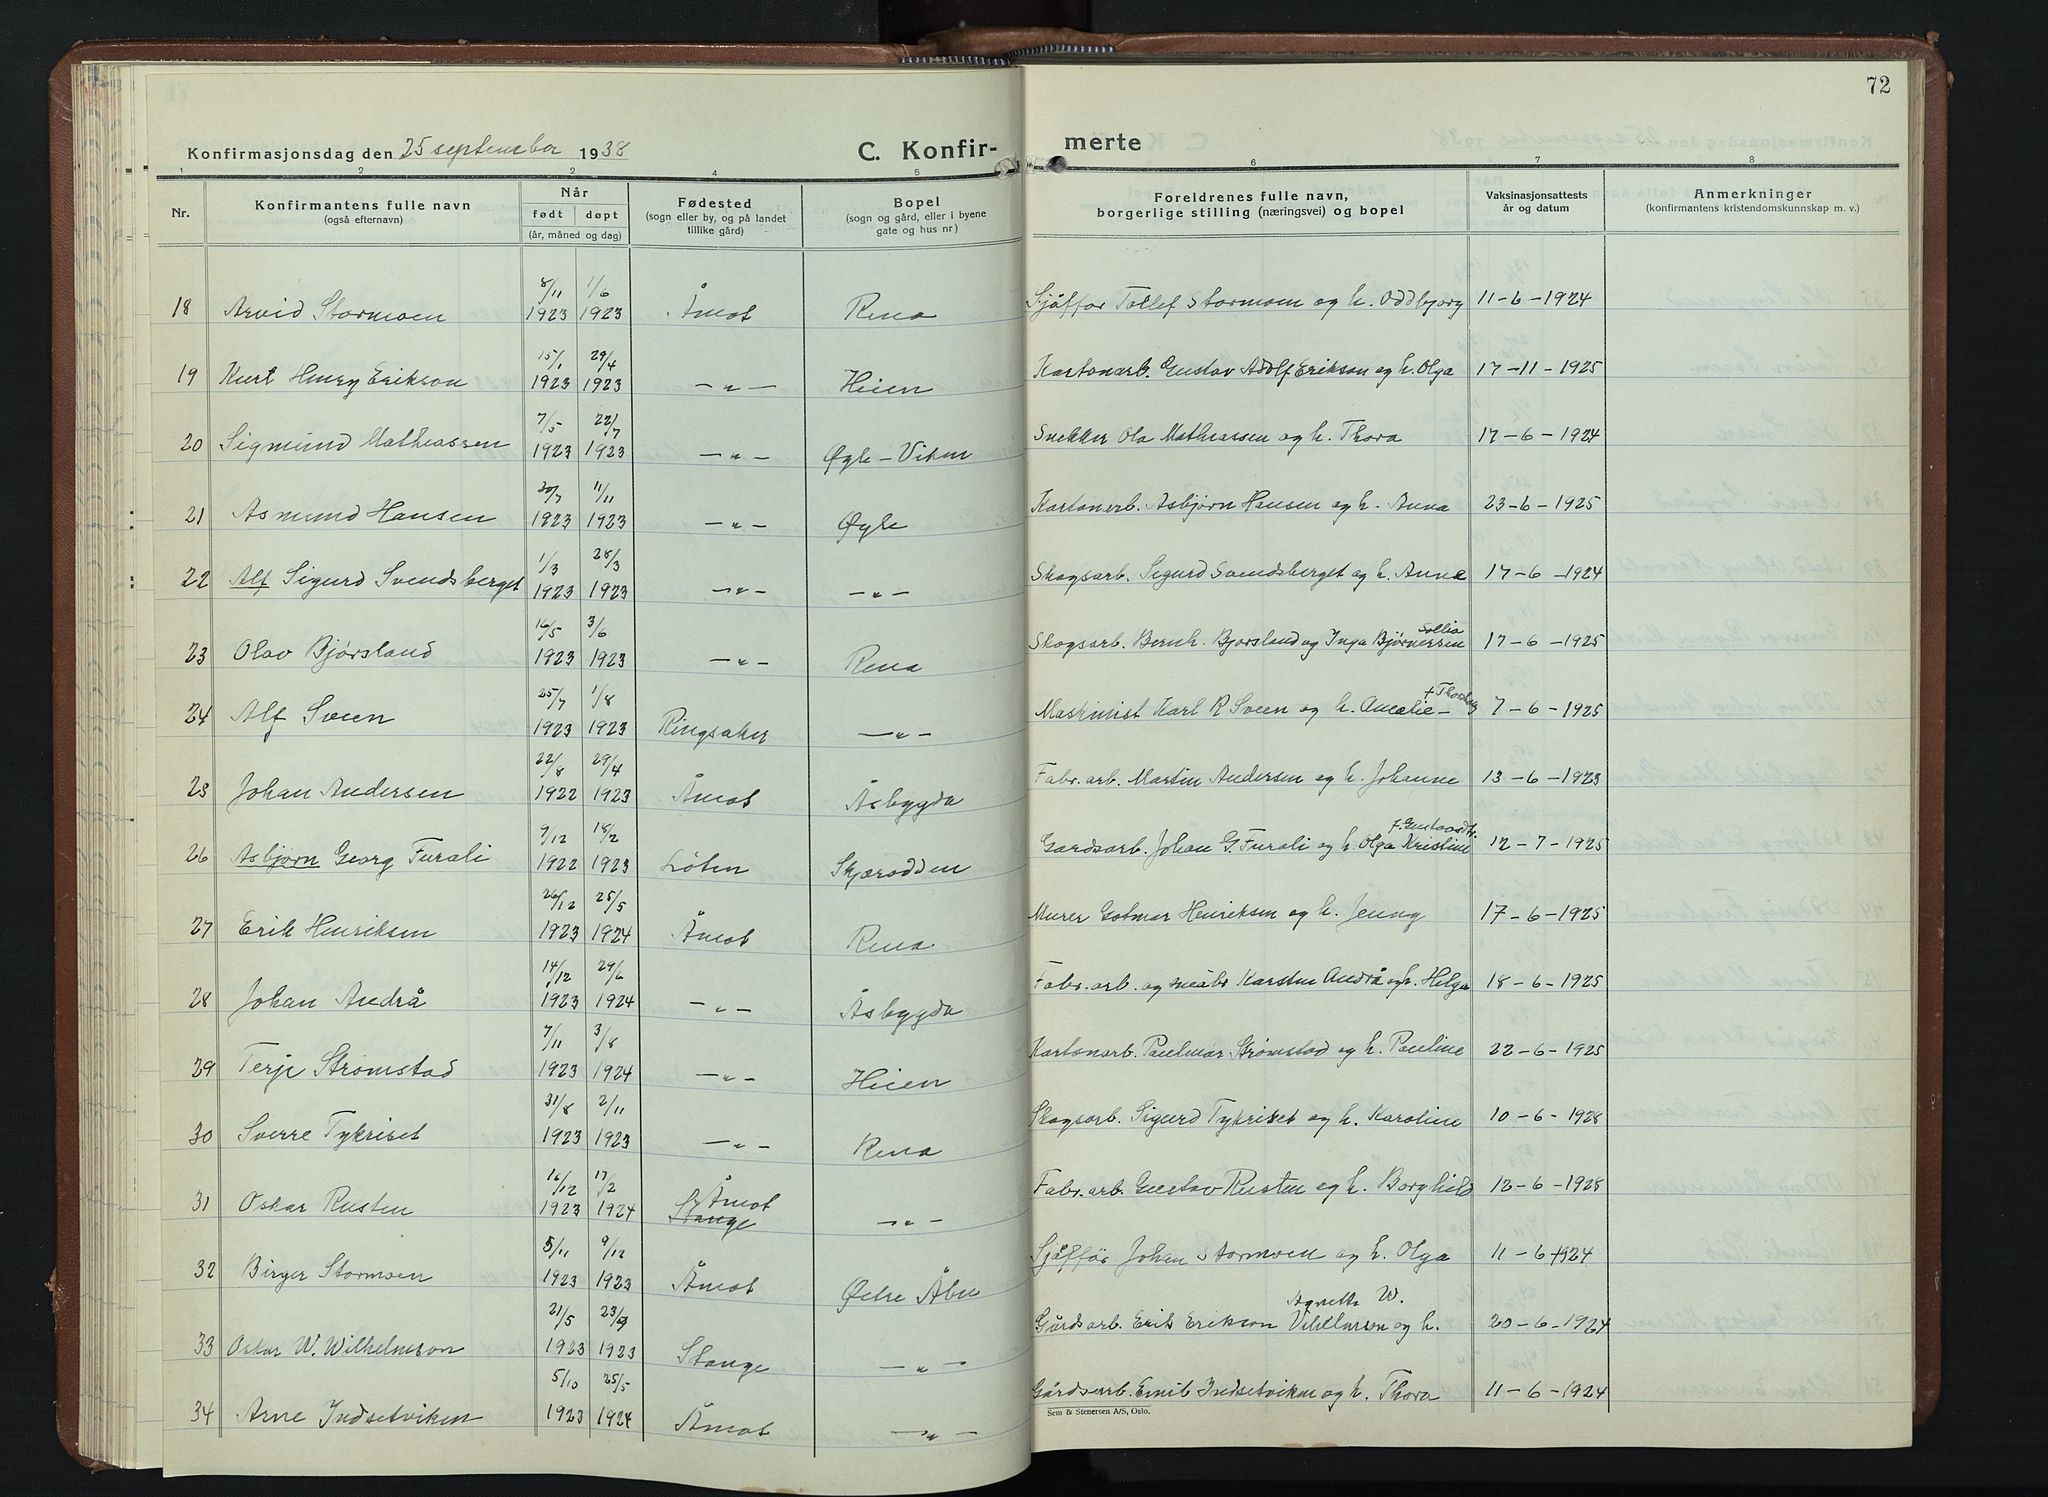 72
Konfirmasjonsdag den 25 september 1938
C. Konfir-
merte
1 2 2 4 5 6 7 8
Nr.
Konfirmantens fulle navn
(også efternavn)
Når
født døpt
(år, måned og dag)
Fødested
(sogn eller by, og på landet
tillike gård)
Bopel
(sogn og gård, eller i byene
gate og hus nr)
Foreldrenes fulle navn,
borgerlige stilling (næringsvei) og bopel
Vaksinasjonsattests
år og datum
Anmerkninger
(konfirmantens kristendomskunnskap m. v.)
8/11 1/6
18 Arvid Stormoen 1923 1923 Åmot Rena Sjåffør Tollef Stormoen og h. Oddbjørg 11-6-1924
15/1 29/4
19 Kurt Henry Erikson 1923 1923 —„— Heien Kartonarb. Gustav Adolf Erikson og h. Olga 17-11-1925
7/5 22/7
20 Sigmund Mathiassen 1923 1923 —„— Øgle-Viken Snekker Ola Mathiassen og h. Thora 17-6-1924
30/7 11/11
21 Asmund Hansen 1923 1923 —„— Øgle Kartonarb. Asbjørn Hansen og h. Anna 23-6-1925
1/3 28/3
22 Alf Sigurd Svendsberget 1923 1923 —„— —„— Skogsarb. Sigurd Svendsberget og h. Anna 17-6-1924
16/5 3/6 Sollia
23 Olav Bjørsland 1923 1923 —„— Rena Skogsarb. Bernh. Bjørsland og Inga Bjørnersen 17-6-1925
25/7 1/8
24 Alf Sveen 1923 1923 Ringsaker —„— Maskinist Karl R Sveen og h. Amalie 7-6-1925
22/8 29/4
25 Johan Andersen 1922 1923 Åmot Åsbygda Fabr. arb. Martin Andersen og h. Johanne 13-6-1923
9/12 18/2 f. Gustavsdtr.
26 Asbjørn Georg Furali 1922 1923 Løten Skjærodden Gårdsarb. Johan G. Furali og h. Olga Kristine 12-7-1925
26/12 25/5
27 Erik Henriksen 1923 1924 Åmot Rena Murer Gotmar Henriksen og h. Jenny 17-6-1925
14/12 29/6
28 Johan Andrå 1923 1924 —„— Åsbygda Fabr. arb. og småbr Karsten Andrå og h. Helga 18-6-1925
7/11 3/8
29 Terje Strømstad 1923 1924 —„— Heien Kartonarb. Paulmar Strømstad og h. Pauline 22-6-1925
31/8 2/11
30 Sverre Tykriset 1923 1923 —„— Rena Skogsarb. Sigurd Tykriset og h. Karoline 10-6-1928
16/12 17/2 Åmot
31 Oskar Rusten 1923 1924 Stange —„— Fabr. arb. Gustav Rusten og h. Borghild 12-6-1928
5/11 9/12
32 Birger Stormoen 1923 1923 Åmot Østre Åbu Sjåffør Johan Stormoen og h. Olga 11-6-1924
21/5 23/9 Agnetha W.
33 Oskar W. Wilhelmson 1923 1923 Stange —„— Gårdsarb. Erik Erikson og h. 20-6-1924
5/10 25/5
34 Arne Indsetviken 1923 1924 Åmot —„— Gårdsarb. Emil Indsetviken og h. Thora 11-6-1924
Sem & Stenersen A/S, Oslo.